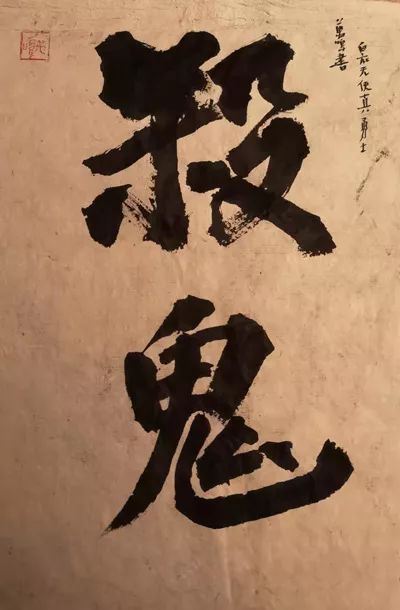 殺鬼
白衣天使真勇士
書